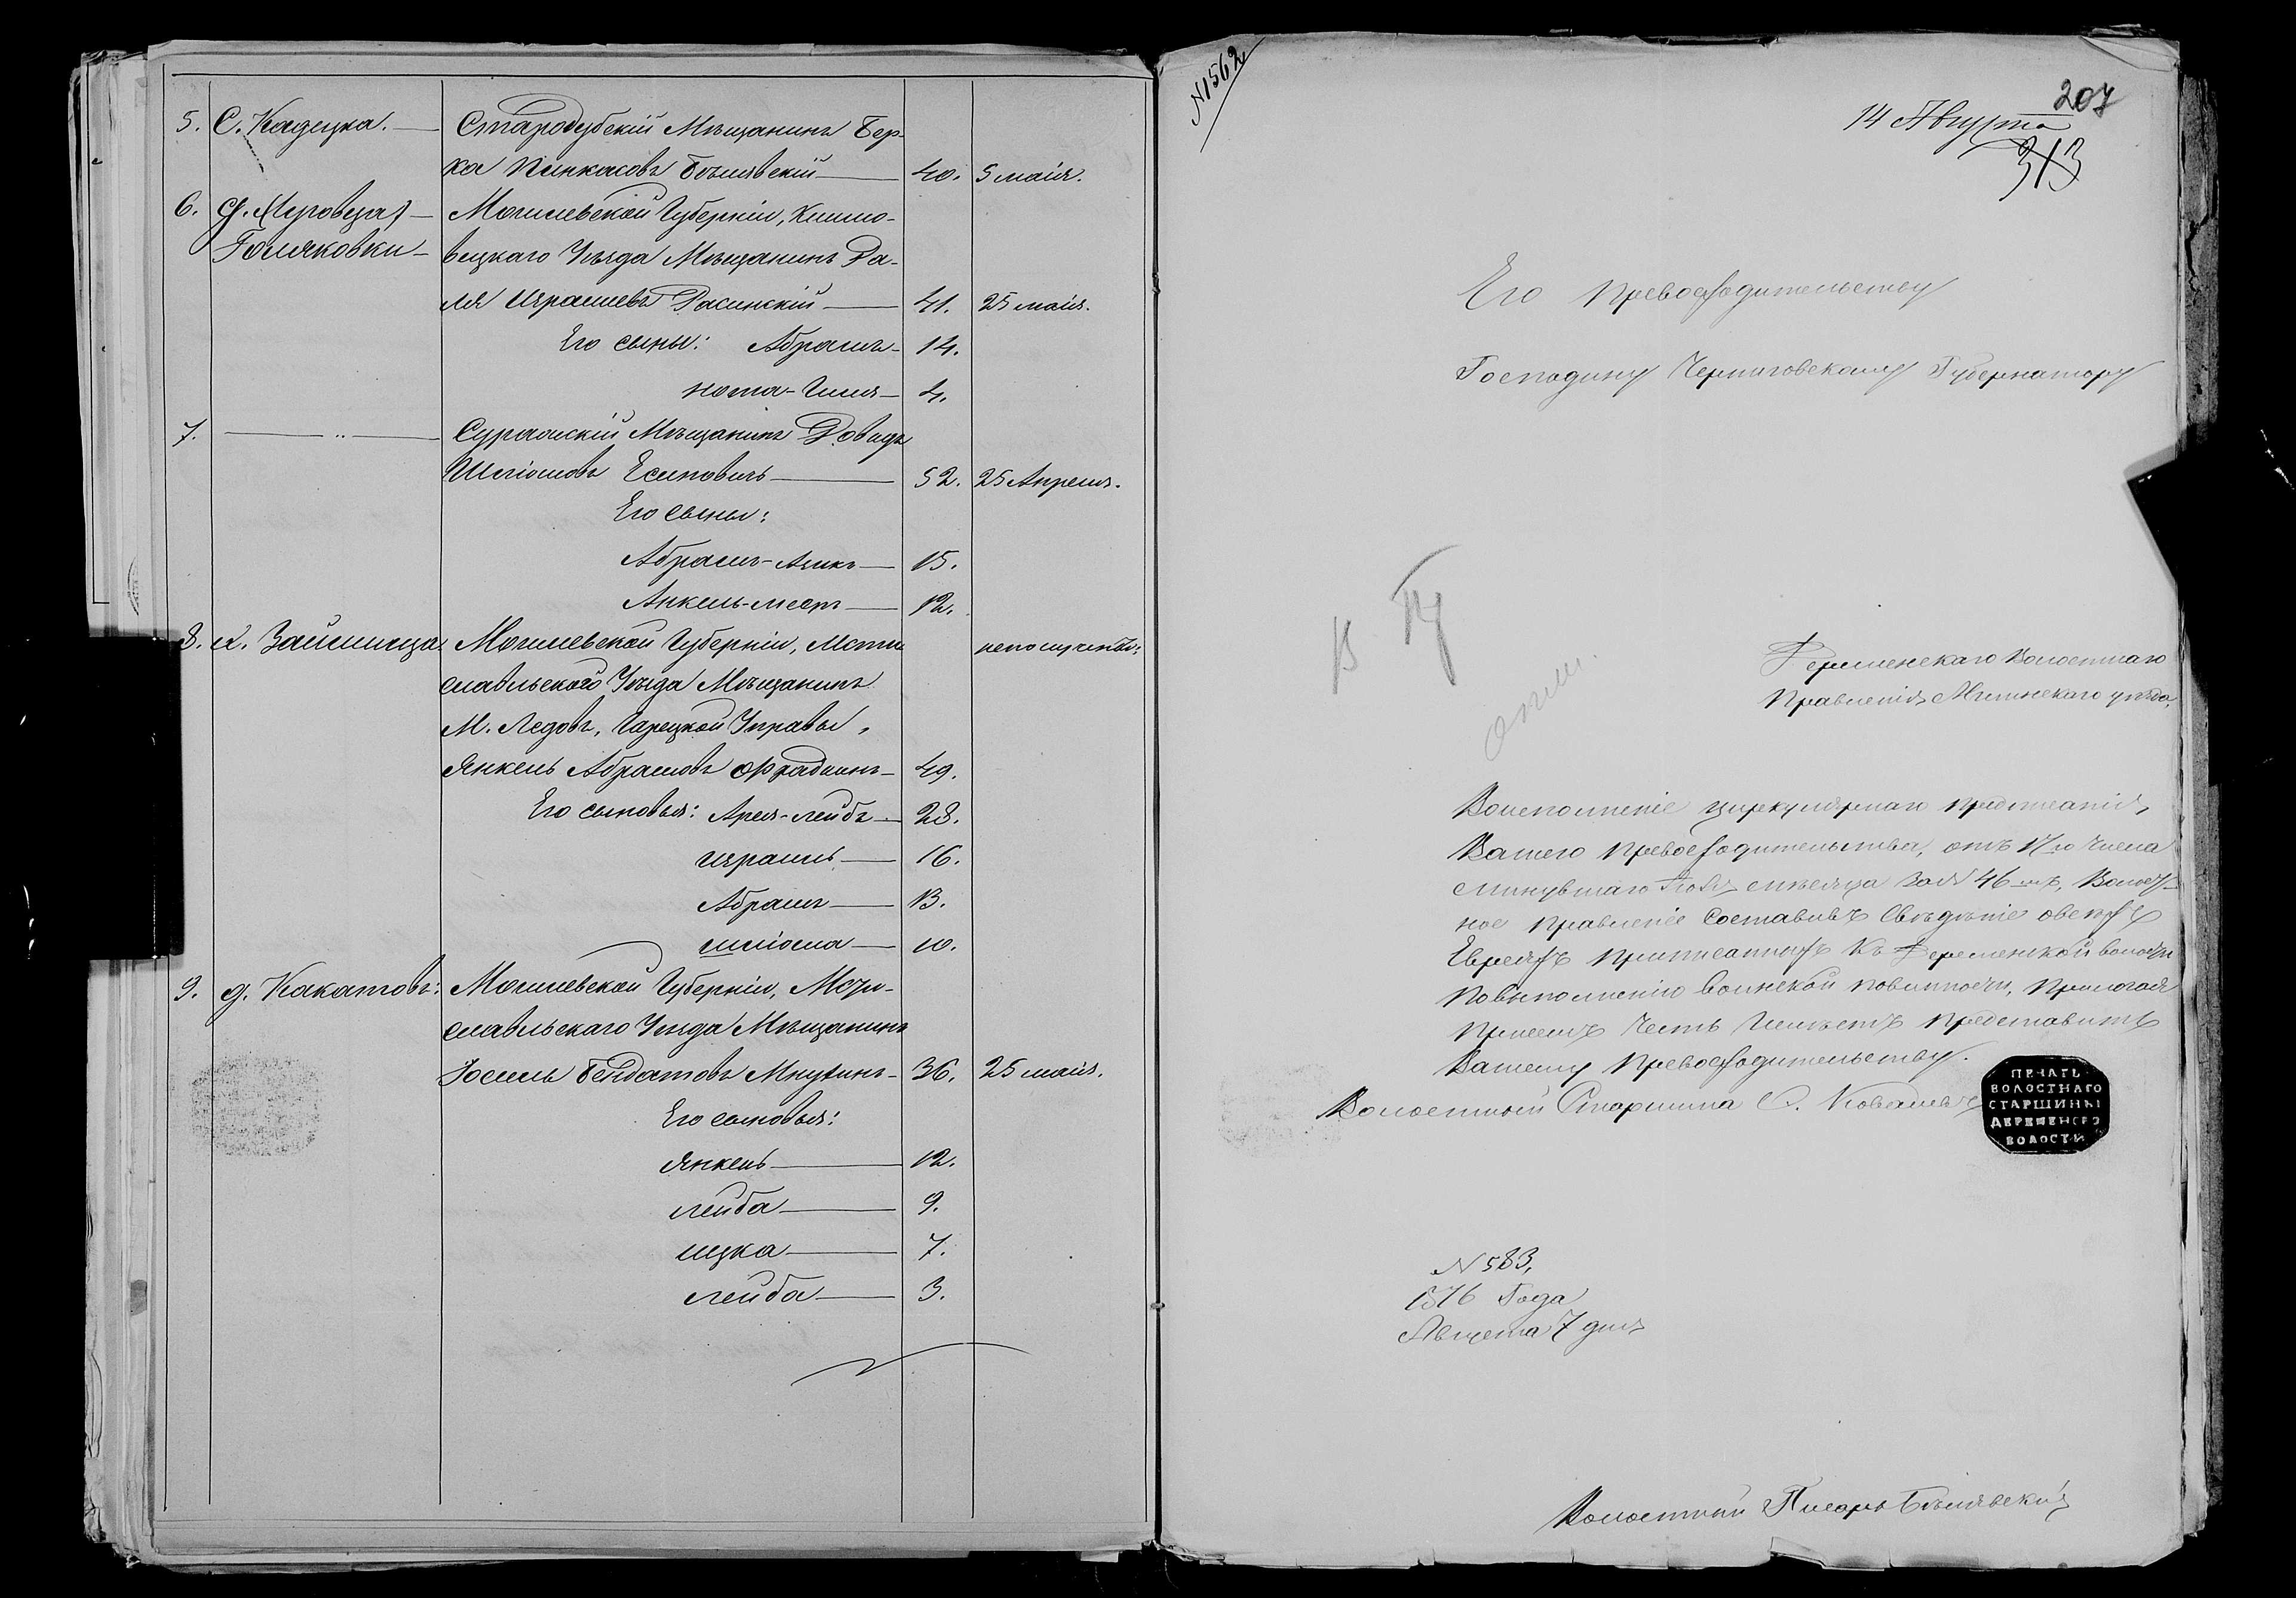 5. С. Кадецка. — Стародубскій Мѣщанинъ Бер-
ка Пинкасовъ Бѣлявскій — 40. 5 маія.
6. Могилевской Губерніи, Климо-
Голяковки — вецкаго Уѣзда Мѣщанинъ Ра-
ля Израилевъ Расинскій — 41. 25 маія.
Его сыны: Абрамъ — 14.
Нота- — 4.
7. — " — Суражскій Мѣщанинъ Довидъ
Шліомовъ Есиповичъ — 52. 25 Апреля.
Его сыны:
Абрамъ-Аизикъ — 15.
Анкель- — 12.
8. Могилевской Губерніи, Мсти
славльского Уѣзда Мѣщанинъ
М. Лядовъ, Управы,
Янкель Абрамовъ Фрадкинъ — 49.
Его сыновья: Арея-Лейбъ — 28.
Израиль — 16.
Абрамъ — 13.
Шліома — 10.
9. д. Какатовъ: Могилевской Губерніи, Мсти-
славльскаго Уѣзда Мѣщанинъ
Іосель Мнухинъ — 36. 25 маія.
Его сыновья:
Янкель — 12.
Лейба — 9.
Ицка — 7.
Лейба — 3.
N 1562
207
14 Августа
313
Его Превосходительству
Господину Черниговскому Губернатору
Деременскаго Волостнаго
Правленія, Мглинскаго уѣзда,
Воисполненіе циркулярнаго предписанія,
Вашего Превосходительства, отъ 17го числа
минувшаго Іюля мѣсяца за № 46мъ, Волост-
ное правленіе составивъ свѣдѣніе овсѣхъ
Евреяхъ приписанныхъ къ Деременской волости
повыполненію воинской повинности, прилогая
присемъ честь имѣетъ представить
Вашему Превосходительству.
Волостной Старшина С. Ковалевъ
ПЕЧАТЬ
ВОЛОСТНАГО
СТАРШИНЫ
ДЕРЕМЕНСКО
ВОЛОСТИ
N 583,
1876 Года
Августа 7 дня
Волостный Писарь Бѣлявскій